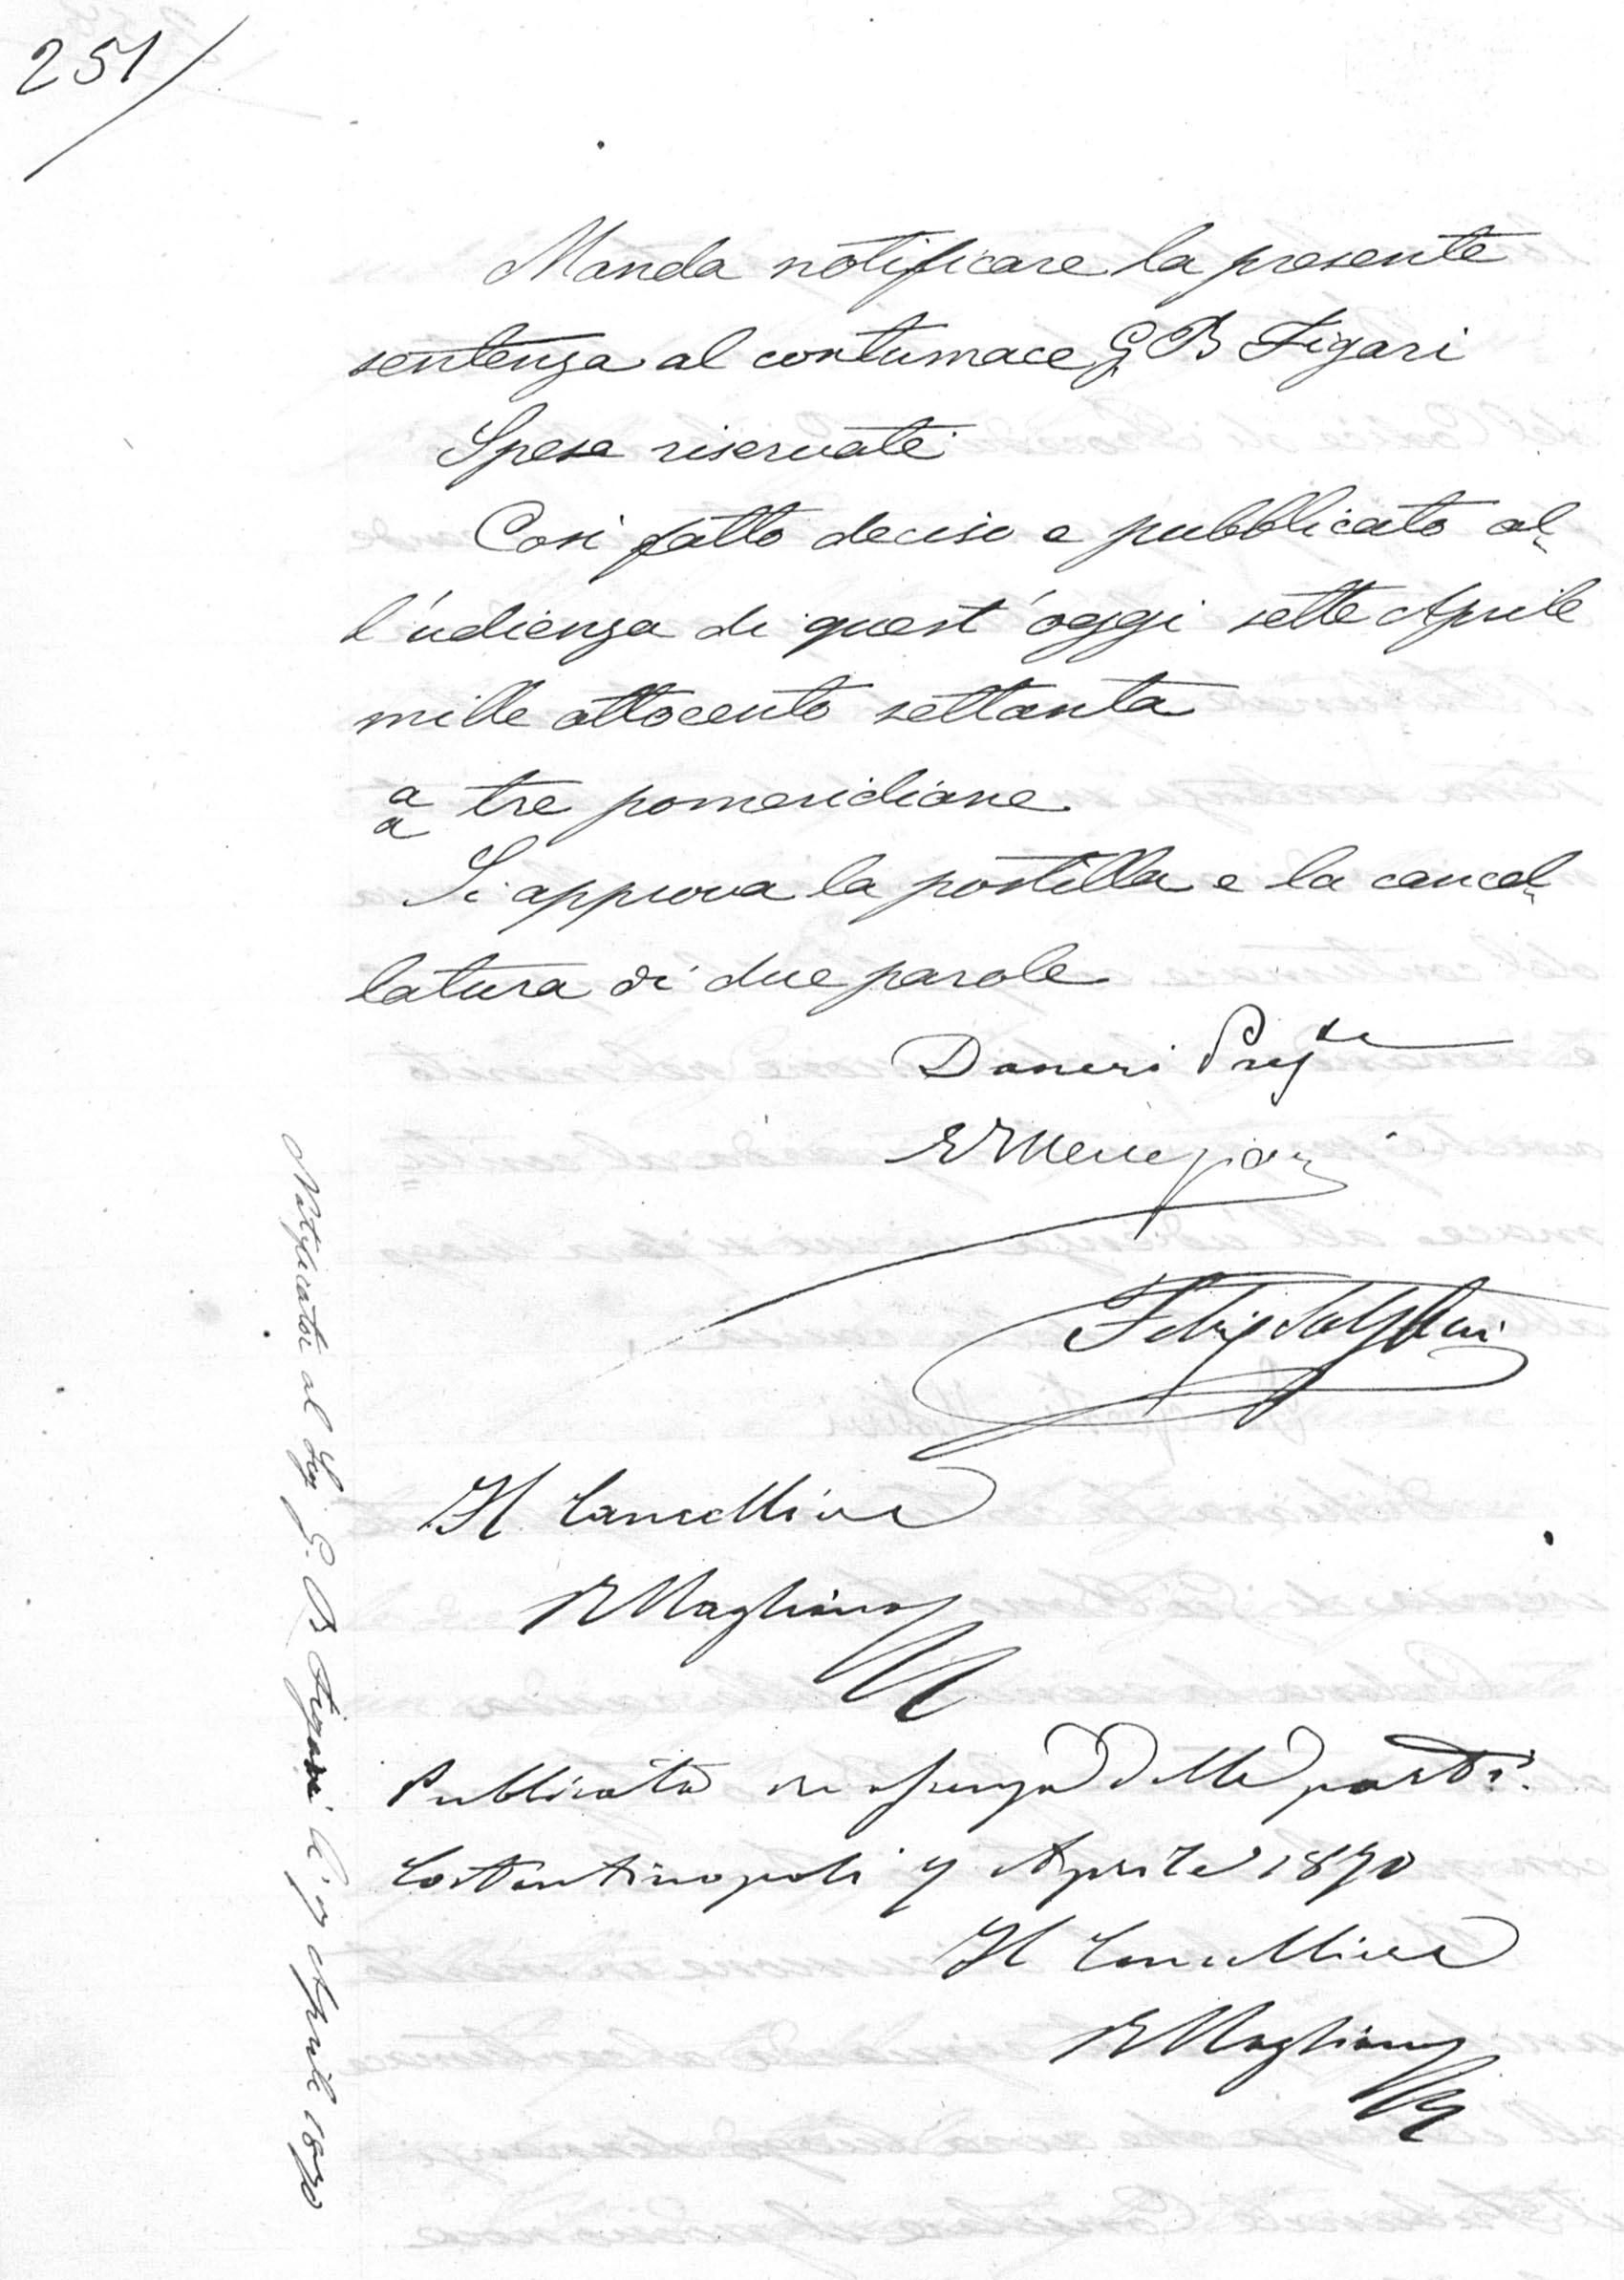 251/
Manda notificare la presente
sentenza al contumace G B Figari
Spese riservate
Cosi fatto deciso e pubblicato al-
l'udienza di quest'oggi sette Aprile
mille ottocento settanta
a tre pomeridiane
a
Si approva la postilla e la cancel-
latura di due parole
Daneri Presdte
Il Cancelliere
Pubblicata in assenza delle parti.
Costantinopoli 7 Aprile 1870
Il Cancelliere
Notificator al Sig G. B Figari li 9 Aprile 1870